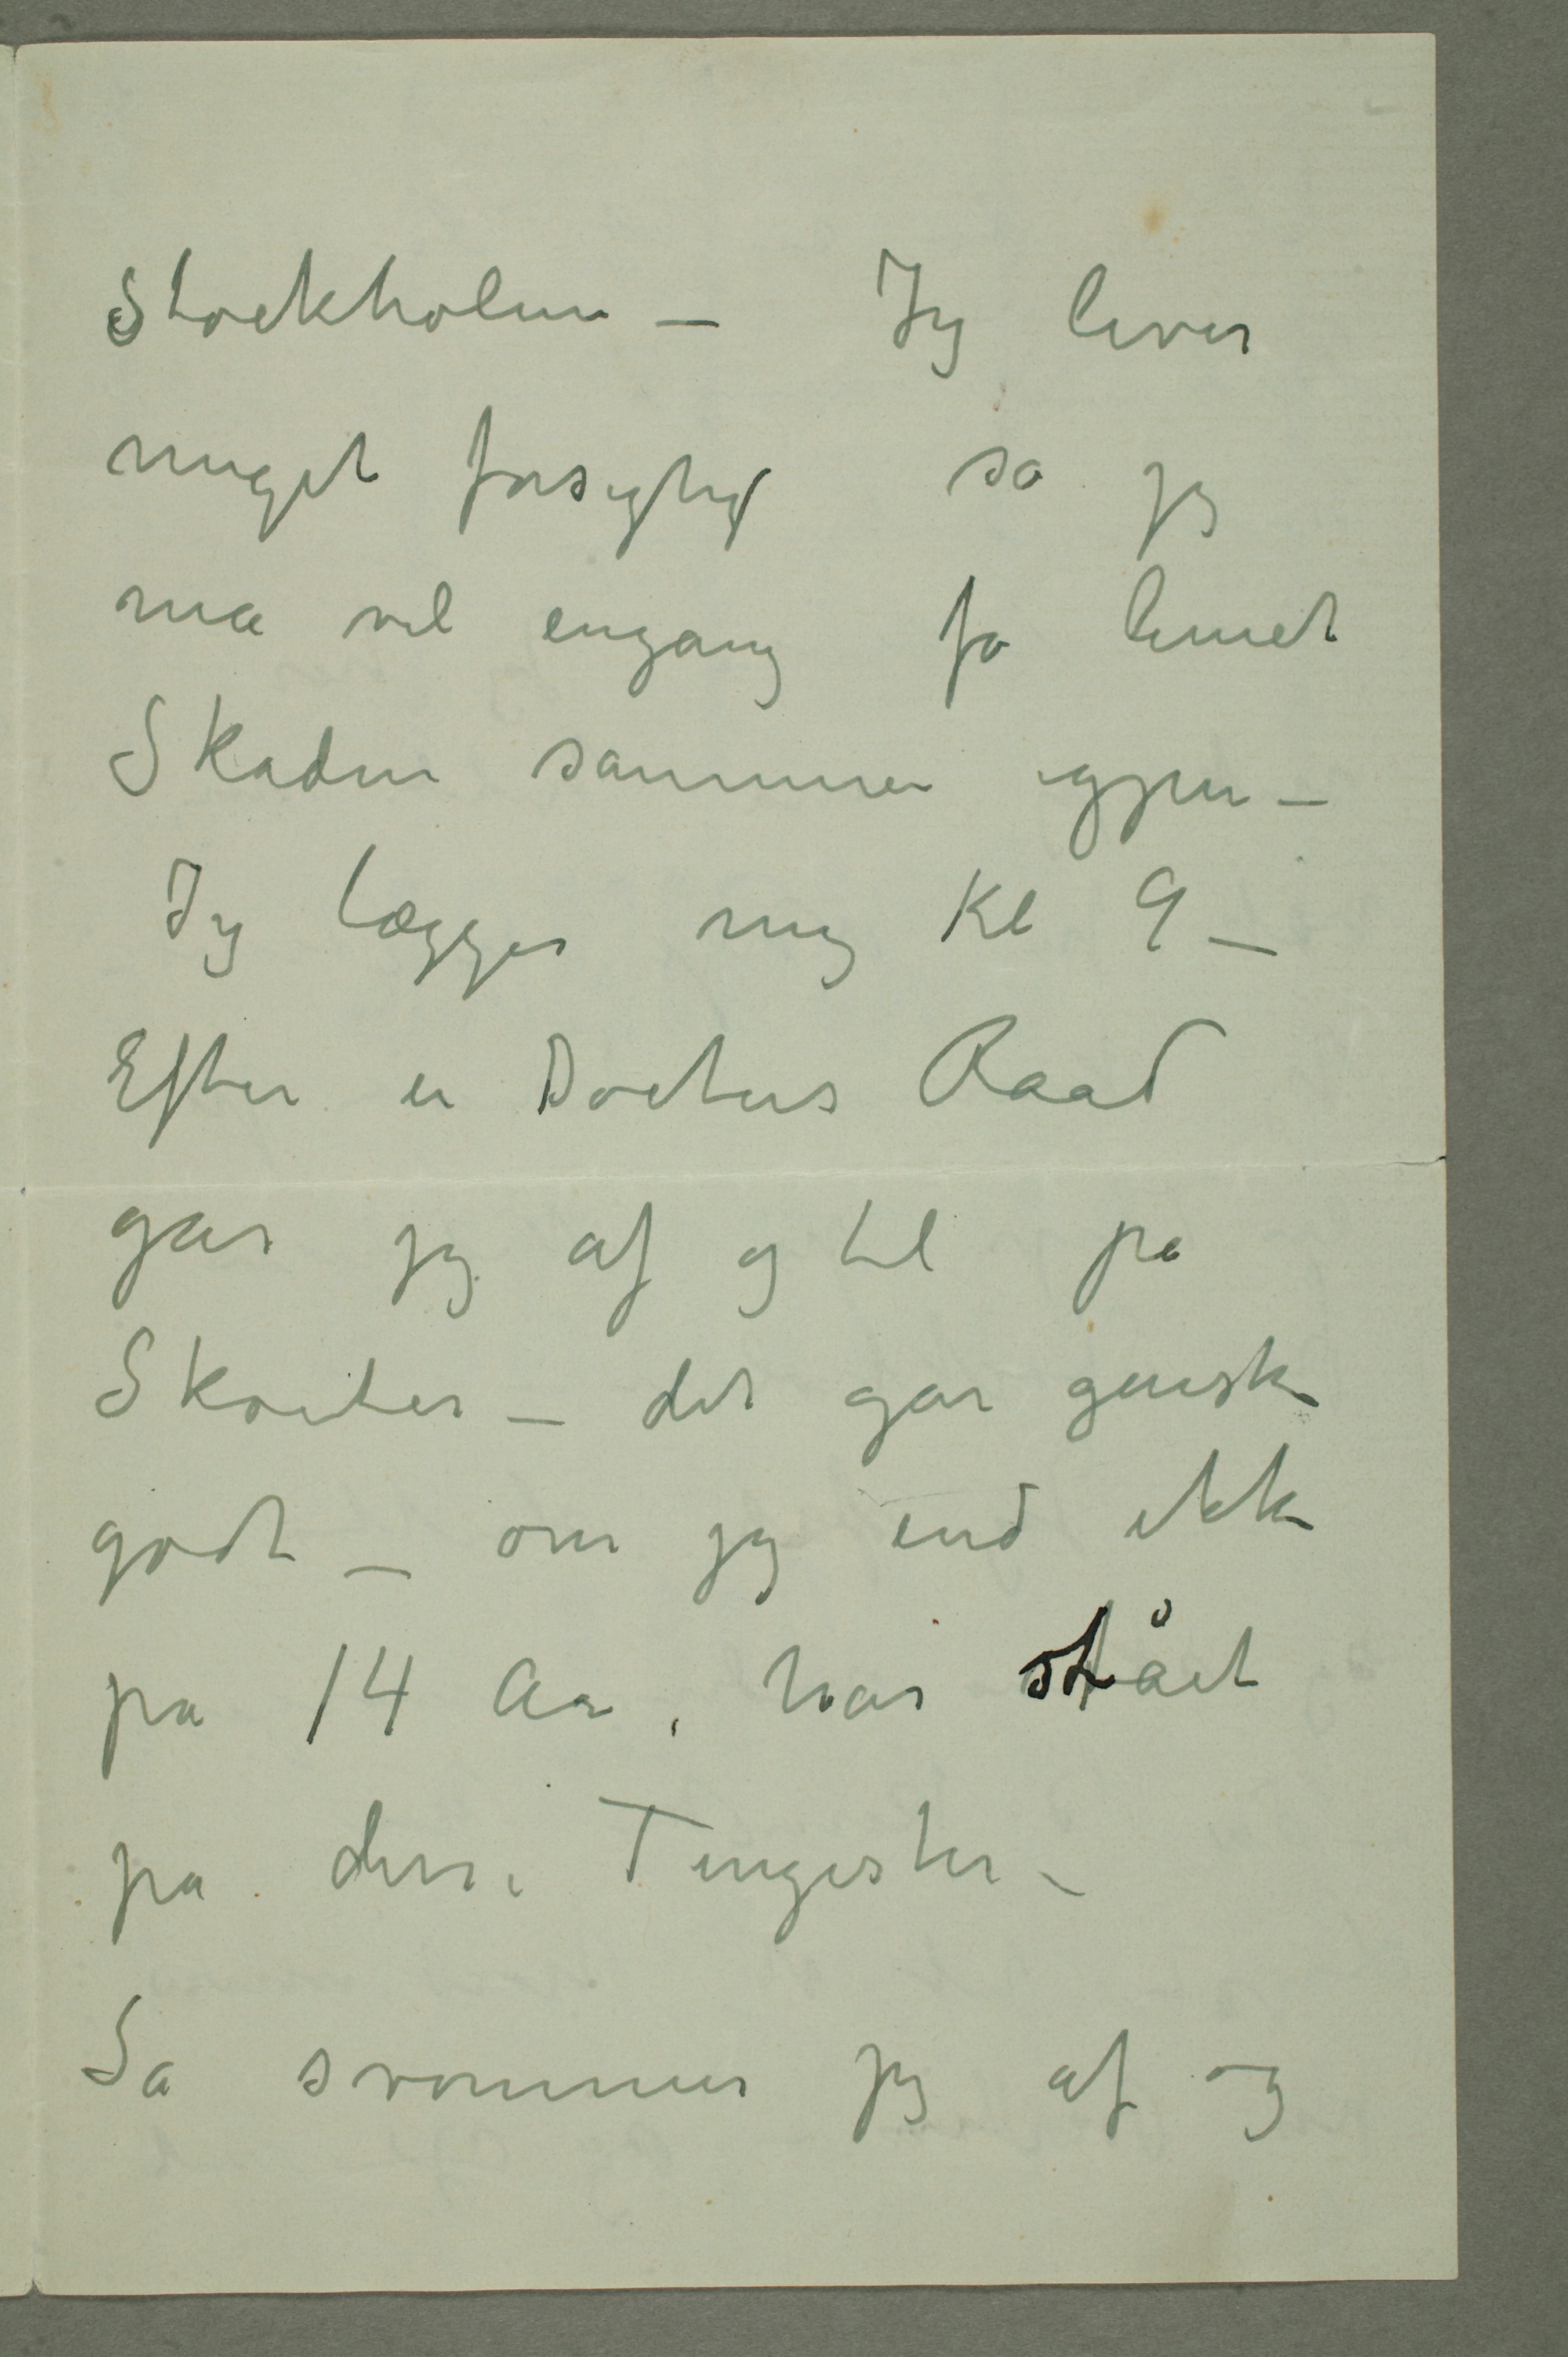 Stockholm – Jeg lever
meget forsigtig så jeg
må vel engang få limet
Skaden sammen igjen –
Jeg lægger mig Kl 9 –
Efter en Doctors Raad
går jeg af og til på
Skøiter – det går ganske
godt – om jeg end ikke
på 14 Aar, har stået
på disse Tingester –
Så svømmer jeg af og